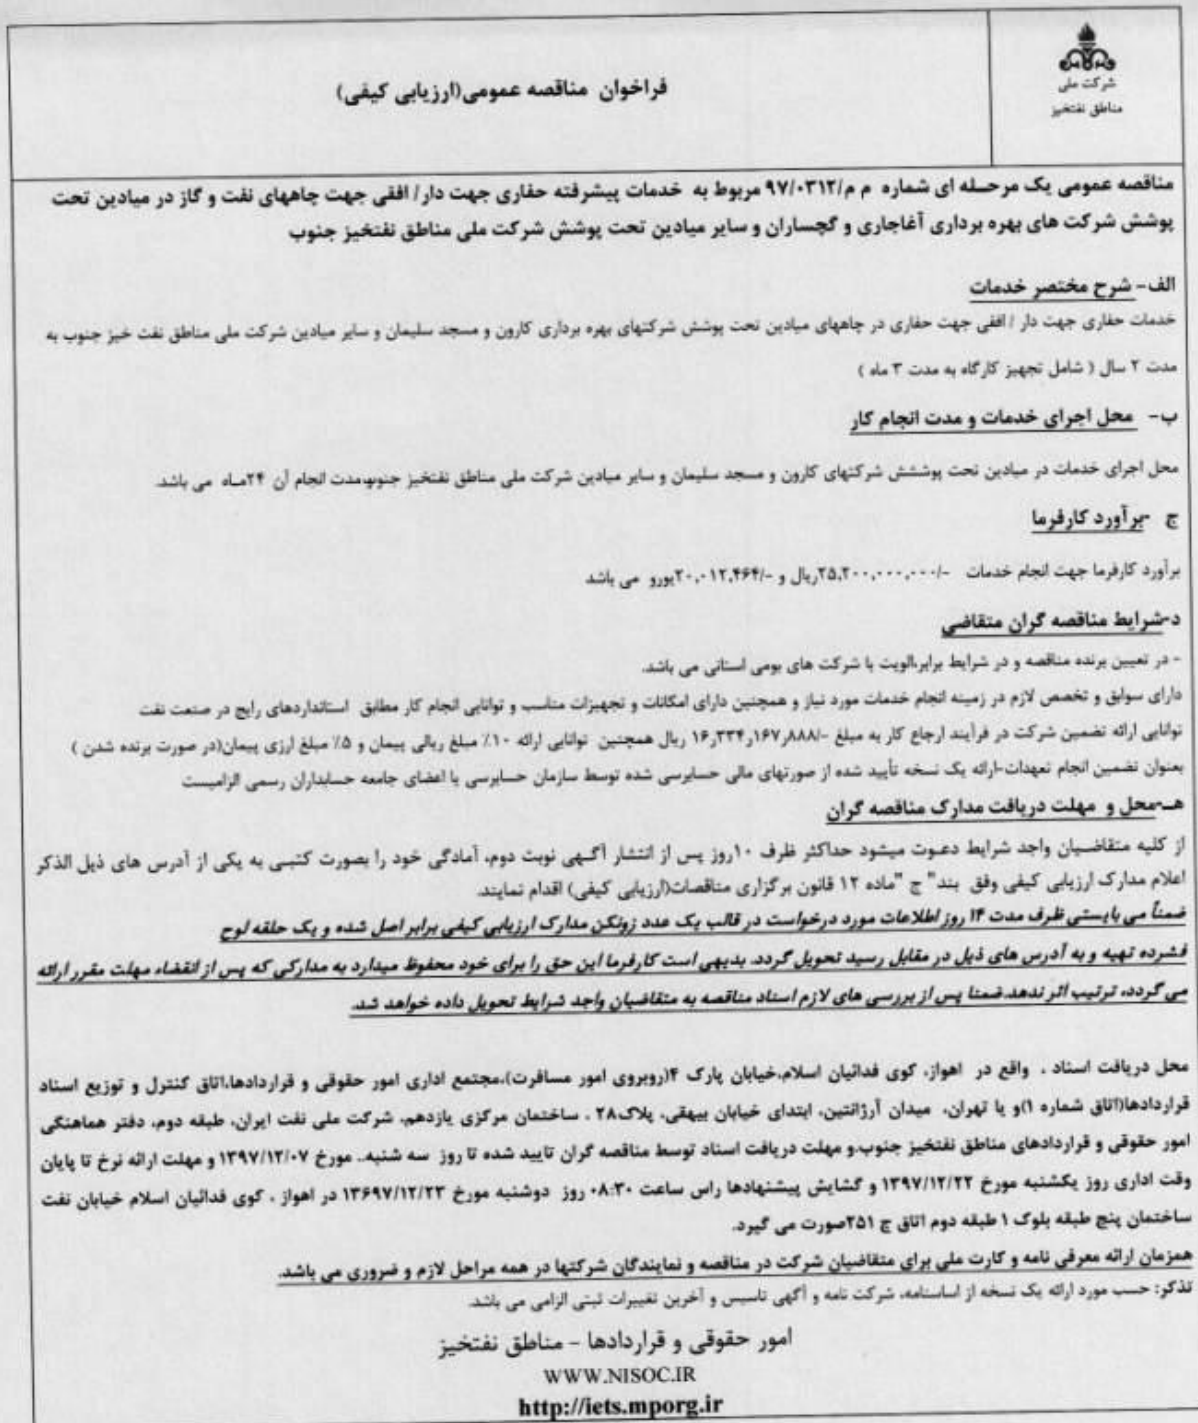 شرکت ملی
مناطق نفتخیز
فراخوان مناقصه عمومی(ارزیابی کیفی)
مناقصه عمومی یک مرحله ای شماره م م/۹۷/۰۳۱۲ مربوط به خدمات پیشرفته حفاری جهت دار/ افقی جهت چاههای نفت و گاز در میادین تحت
پوشش شرکت های بهره برداری آغاجاری و گچساران و سایر میادین تحت پوشش شرکت ملی مناطق نفتخیز جنوب
الف- شرح مختصر خدمات
خدمات حفاری جهت دار / افقی جهت حفاری در چاههای میادین تحت پوشش شرکتهای بهره برداری کارون و مسجد سلیمان و سایر میادین شرکت ملی مناطق نفت خیز جنوب به
مدت ۲ سال ( شامل تجهیز کارگاه به مدت ۳ ماه )
ب- محل اجرای خدمات و مدت انجام کار
محل اجرای خدمات در میادین تحت پوششش شرکتهای کارون و مسجد سلیمان و سایر میادین شرکت ملی مناطق نفتخیز جنوب،مدت انجام آن ۲۴ماه می باشد.
ج -برآورد کارفرما
برآورد کارفرما جهت انجام خدمات -/۲۵,۲۰۰,۰۰۰,۰۰۰ریال و -/۲۰,۰۱۲,۴۶۴یورو می باشد
د-شرایط مناقصه گران متقاضی
- در تعیین برنده مناقصه و در شرایط برابر،الویت با شرکت های بومی استانی می باشد.
دارای سوابق و تخصص لازم در زمینه انجام خدمات مورد نیاز و همچنین دارای امکانات و تجهیزات مناسب و توانایی انجام کار مطابق استانداردهای رایج در صنعت نفت
توانایی ارائه تضمین شرکت در فرآیند ارجاع کار به مبلغ -/۱۶٫۳۳۴٫۱۶۷٫۸۸۸ ریال همچنین توانایی ارائه ۱۰٪ مبلغ ریالی پیمان و ۵٪ مبلغ ارزی پیمان(در صورت برنده شدن )
بعنوان تضمین انجام تعهدات-ارائه یک نسخه تأیید شده از صورتهای مالی حسابرسی شده توسط سازمان حسابرسی یا اعضای جامعه حسابداران رسمی الزامیست
هـ-محل و مهلت دریافت مدارک مناقصه گران
از کلیه متقاضیان واجد شرایط دعوت میشود حداکثر ظرف ۱۰روز پس از انتشار آگهی نوبت دوم، آمادگی خود را بصورت کتبی به یکی از آدرس های ذیل الذکر
اعلام مدارک ارزیابی کیفی وفق بند" ج "ماده ۱۲ قانون برگزاری مناقصات(ارزیابی کیفی) اقدام نمایند.
ضمناً می بایستی ظرف مدت ۱۴ روز اطلاعات مورد درخواست در قالب یک عدد زونکن مدارک ارزیابی کیفی برابر اصل شده و یک حلقه لوح
فشرده تهیه و به آدرس های ذیل در مقابل رسید تحویل گردد. بدیهی است کارفرما این حق را برای خود محفوظ میدارد به مدارکی که پس از انقضاء مهلت مقرر ارائه
می گردد، ترتیب اثر ندهد.ضمنا پس از بررسی های لازم اسناد مناقصه به متقاضیان واجد شرایط تحویل داده خواهد شد.
محل دریافت اسناد ، واقع در اهواز، کوی فدائیان اسلام،خیابان پارک ۴(روبروی امور مسافرت)،مجتمع اداری امور حقوقی و قراردادها،اتاق کنترل و توزیع اسناد
قراردادها(اتاق شماره ۱)و یا تهران، میدان آرژانتین، ابتدای خیابان بیهقی، پلاک۲۸ ، ساختمان مرکزی یازدهم، شرکت ملی نفت ایران، طبقه دوم، دفتر هماهنگی
امور حقوقی و قراردادهای مناطق نفتخیز جنوب.و مهلت دریافت اسناد توسط مناقصه گران تایید شده تا روز سه شنبه. مورخ ۱۳۹۷/۱۲/۰۷ و مهلت ارائه نرخ تا پایان
وقت اداری روز یکشنبه مورخ ۱۳۹۷/۱۲/۲۲ و گشایش پیشنهادها راس ساعت ۰۸:۳۰ روز دوشنبه مورخ ۱۳۶۹۷/۱۲/۲۳ در اهواز ، کوی فدائیان اسلام خیابان نفت
ساختمان پنج طبقه بلوک ۱ طبقه دوم اتاق ج ۲۵۱صورت می گیرد.
همزمان ارائه معرفی نامه و کارت ملی برای متقاضیان شرکت در مناقصه و نمایندگان شرکتها در همه مراحل لازم و ضروری می باشد.
تذکر: حسب مورد ارائه یک نسخه از اساسنامه، شرکت نامه و آگهی تاسیس و آخرین تغییرات ثبتی الزامی می باشد.
امور حقوقی و قراردادها – مناطق نفتخیز
WWW.NISOC.IR
http://iets.mporg.ir